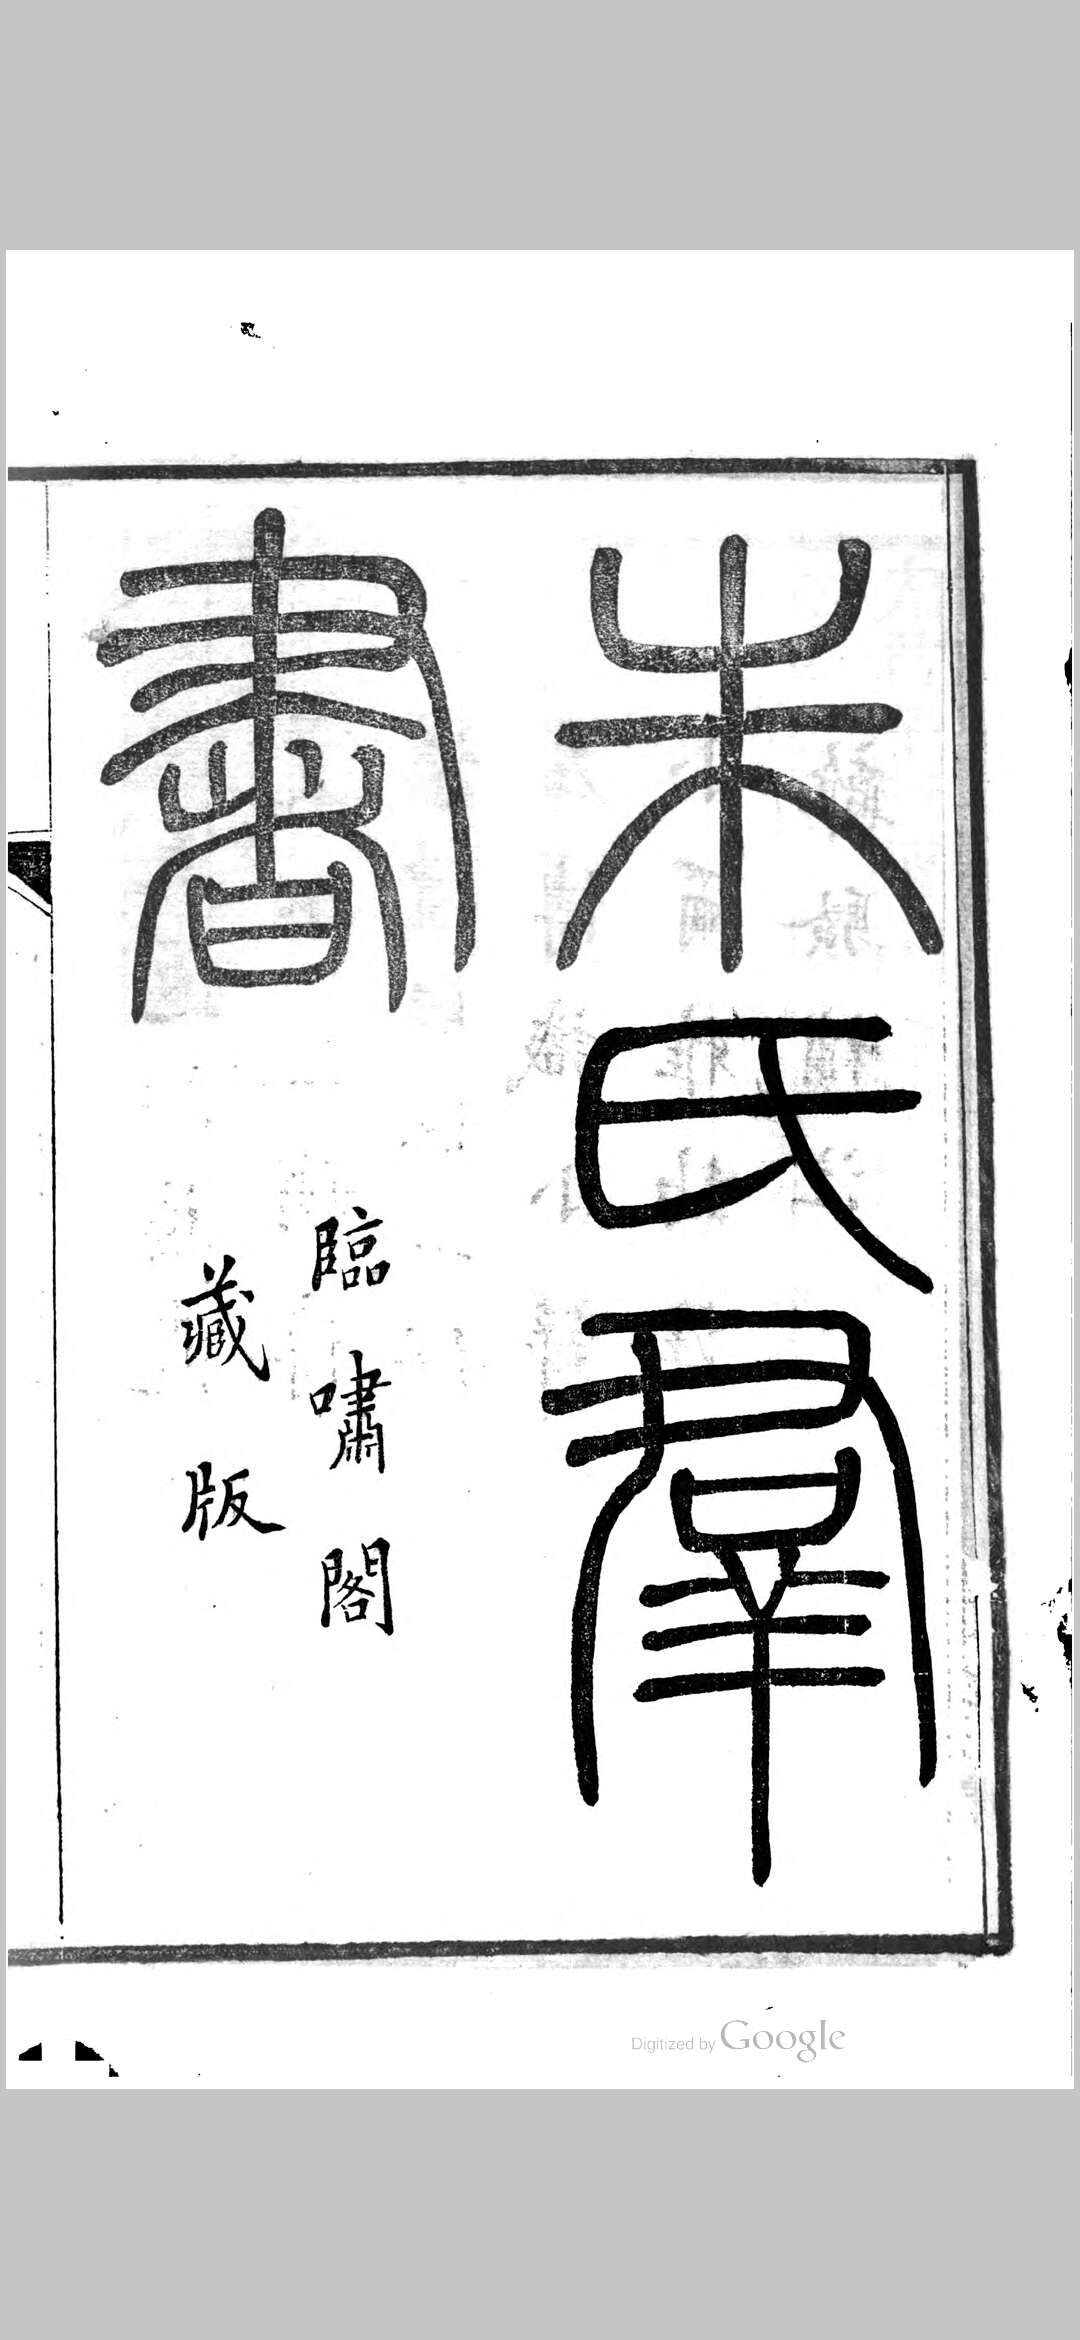 朱氏羣
書
臨嘯閣
藏版
Digitized by Google